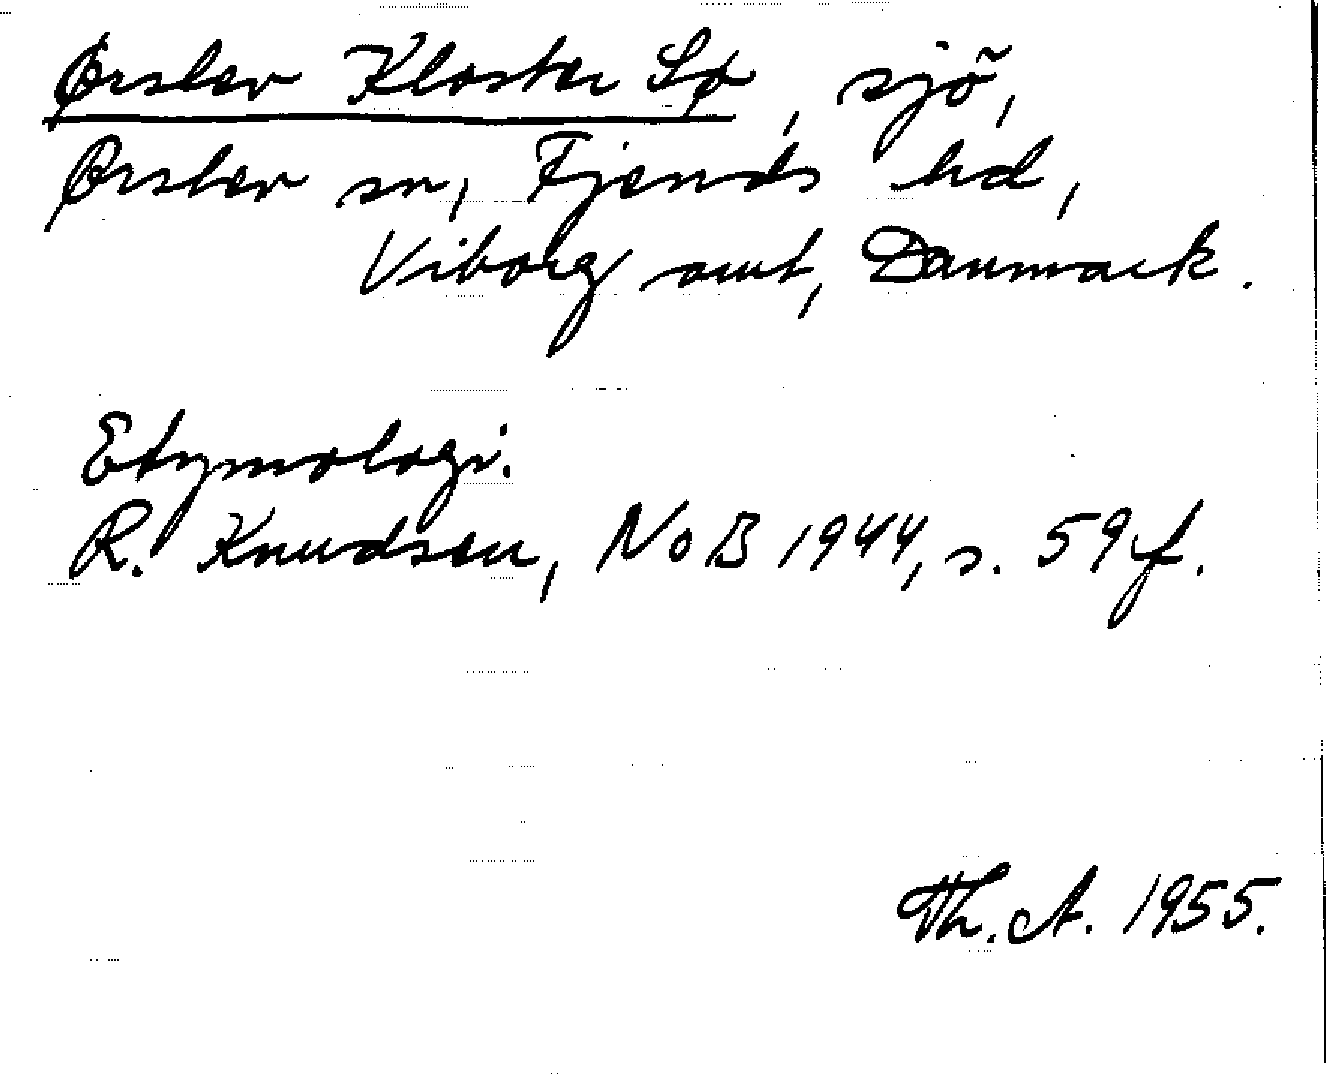 Ørslev Kloster Sø, sjö,
Ørslev sn, Fjends hd,
Viborg amt, Danmark.
Etymologi.
R. Knudsen, NoB 1944, s. 59 f.
Th. A. 1955.